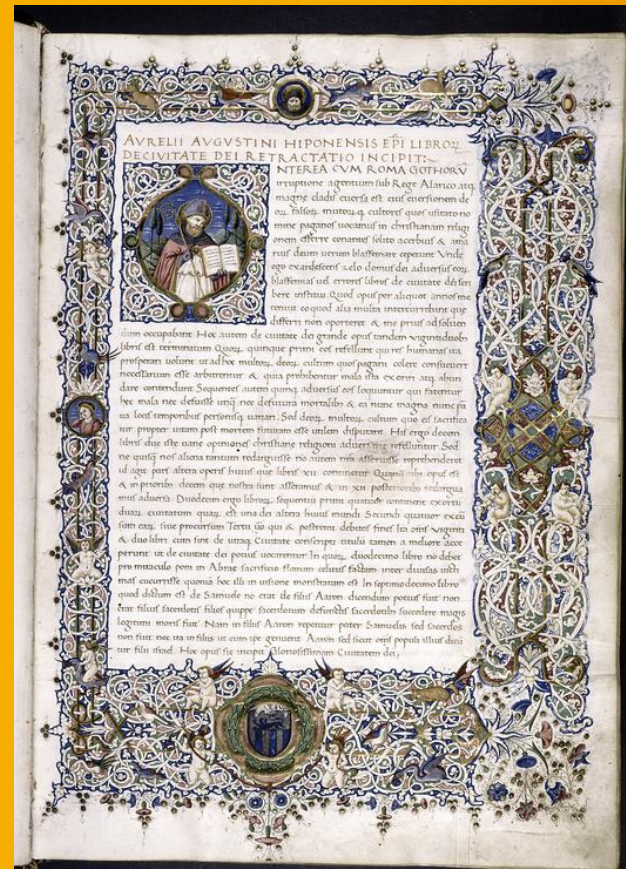 AVRELII AVGVSTINI HIPONENSIS EPI LIBROꝜ
DE CIVITATE DEI RETRACTATIO INCIPIT:
NTEREA CVM ROMA GOTHORV̄
irruptione agentium sub Rege Alarico atq
magne cladis euersa est eius euersionem de
oꝝ falsoꝝ multoꝝq cultores quos usitato no
mine paganos uocamus in christianam religi
onem referre conantes solito acerbius & ama
rius deum uerum blasfemare ceperunt Vnde
ego exardescens zelo domus dei aduersus eoꝝ
blasfemias uel errores libros de ciuitate dei scri
bere institui Quod opus per aliquot annos me
tenuit eo quod alia multa intercurrebant que
differri non oporteret & me prius ad soluen
dum occupabant Hoc autem de ciuitate dei grande opus tandem uigintiduob;
libris est terminatum Quoꝝ quinque primi eos refellunt qui res humanas ita
prosperari uolunt ut ad hoc multoꝝ deoꝝ cultum quos pagani colere consueuerūt
necessarium esse arbitrentur & quia prohibentur mala ista exoriri atq abun
dare contendunt Sequentes autem quinq aduersus eos loquuntur qui fatentur
hec mala nec defuisse unq nec defutura mortalib; & ea nunc magna nunc pa
ua locis temporibus personisq uariari Sed deoꝝ multoꝝ cultum quo eis sacrifica
tur propter uitam post mortem futuram esse utilem disputant His ergo decem
libris due iste uane opiniones christiane religioni aduersarie refelluntur Sed
ne quisq nos aliena tantum redarguisse no autem nr̄a asseruisse reprehenderet
id agit pars altera operis huius que libris xii continetur Quanq̄ ubi opus est
& in prioribus decem que nostra sunt asseramus & in xii posterioribus redargua
mus aduersa Duodecim ergo libroꝝ sequentiū primi quatuor continent exortū
duaꝝ ciuitatum quaꝝ est una dei altera huius mundi Secundi quatuor excu
sum eaꝝ siue procursum Tertii u̅o qui & postremi debitos fines Ita om̄s uiginti
& duo libri cum sint de utraq Ciuitate conscripti titulū tamen a meliore acce
perunt ut de ciuitate dei potius uocarentur In quoꝝ duodecimo libro no debet
pro miraculo poni in Abrae sacrificio flamam celitus factam inter diuisas uicti
mas cucurrisse quoniā hoc illi in uisione monstratum est In septimodecimo libro
quod dictum est de Samuele no erat de filiis Aaron dicendum potius fuit non
erat filius sacerdotis filios quippe sacerdotum defunctis sacerdotib; succedere magis
legitimi moris fuit Nam in filiis Aaron reperitur pater Samuelis sed sacerdos
non fuit nec ita in filiis ut eum ipe genuerit Aaron sed sicut om̄s populi illius dicū
tur filii israel Hoc opus sic incipit Gloriosissimam Ciuitatem dei